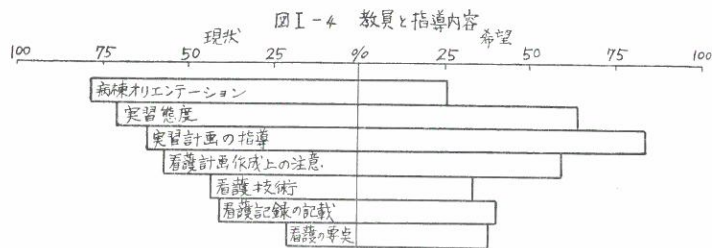 図I-4 教員と指導内容
現状 希望
100 75 50 25 % 25 50 75 100
病棟オリエンテーション
実習態度
実習計画の指導
看護計画作成上の注意.
看護技術
看護記録の記載
看護の要点